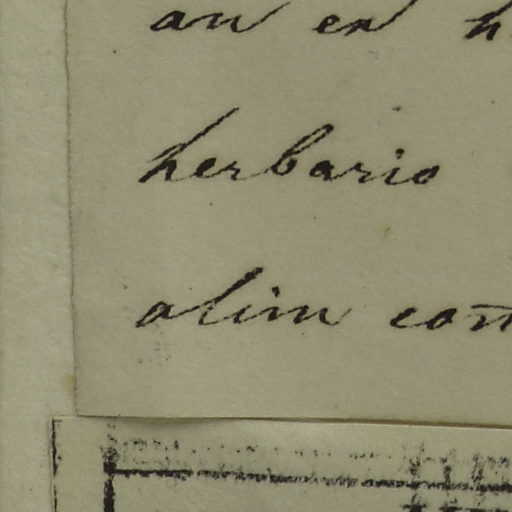 an ex h
herbario
olim com